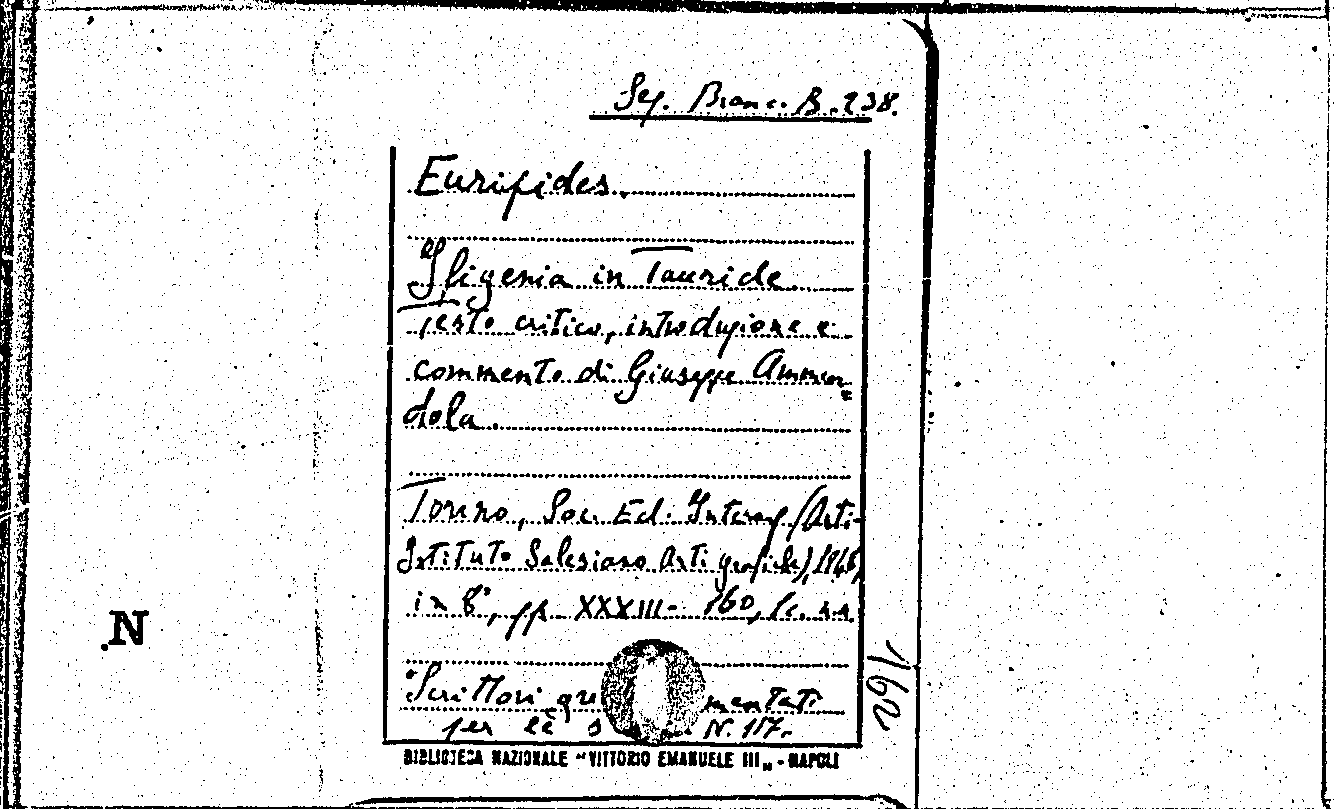 Sez. Branc. B. 238.
Euripides.
Ifigenia in Tauride
Testo critico, introduzione e
commento di Giuseppe Ammen=
dola.
Torino, Soc. Ed. Internaz. (Asti-
Istituto Salesiano Arti grafiche), 1948,
in 8°, pp. XXXIII- 160, 1 c. nn.
"Scrittori gre mentati
per le s N. 117.
162
.N
BIBLIOTECA NAZIONALE "VITTORIO EMANUELE III„ - NAPOLI